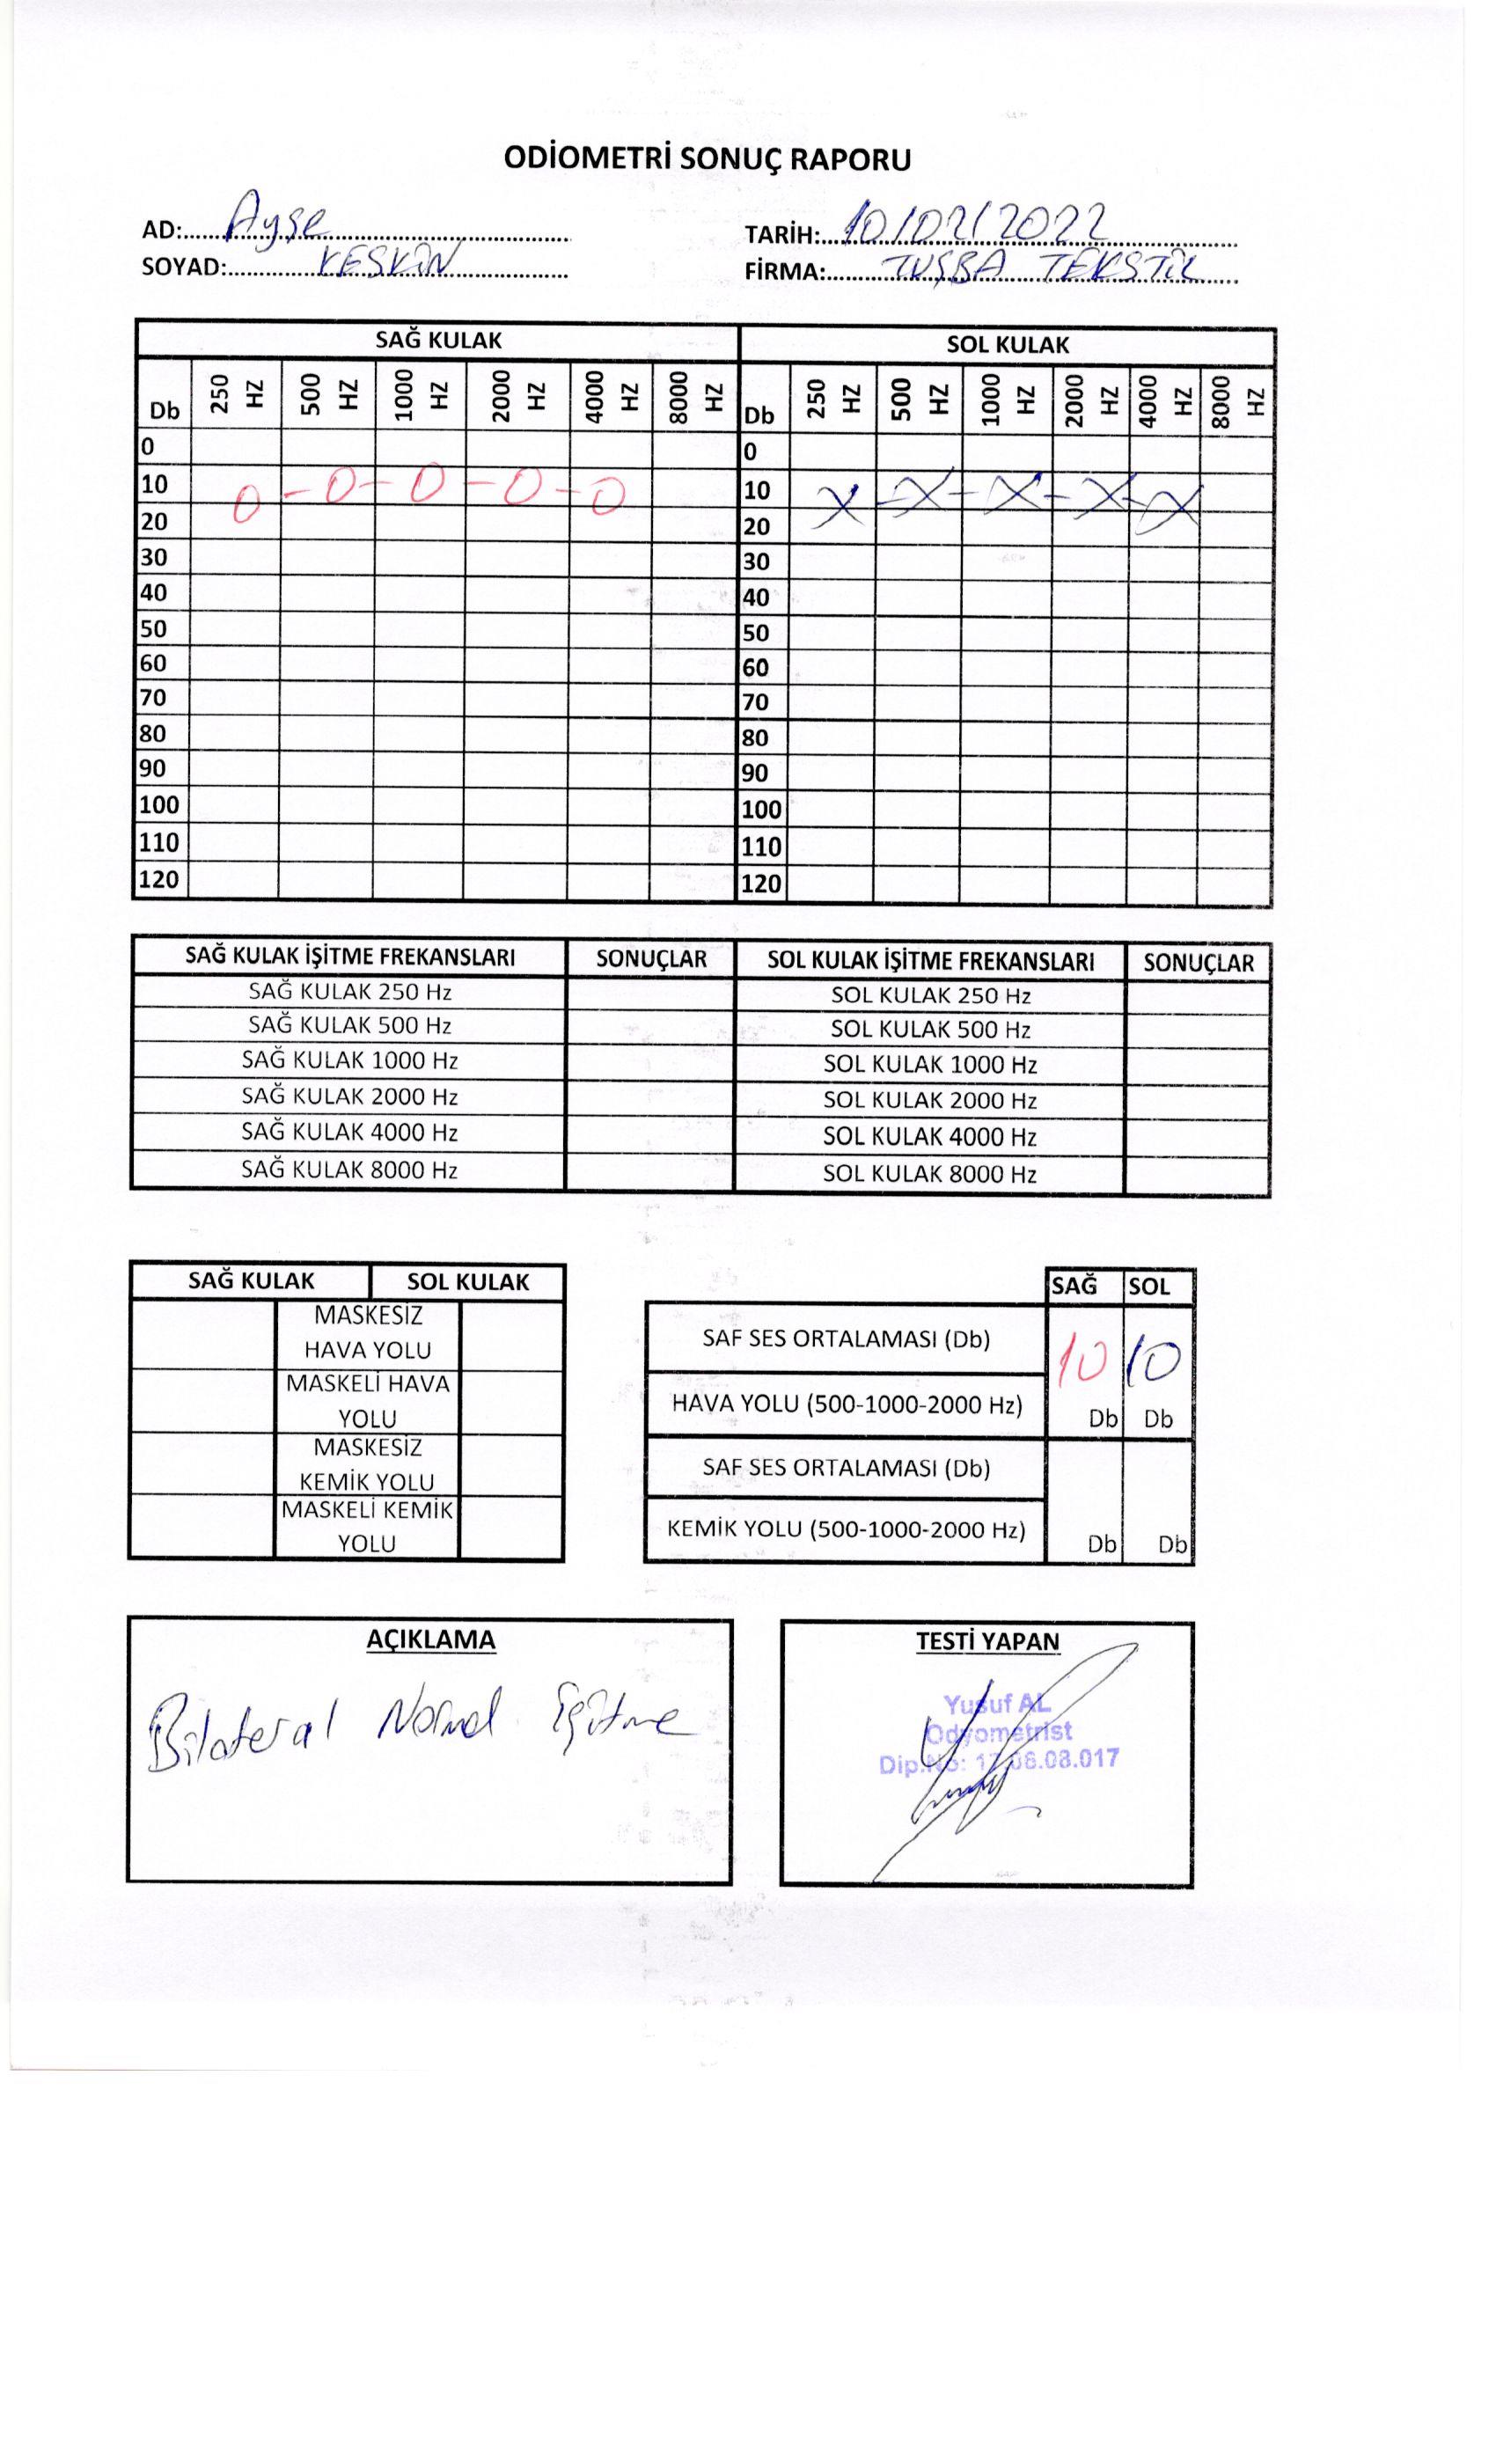 ODİOMETRİ SONUÇ RAPORU
AD:.....Ayşe..... TARİH:.....10/02/2022.....
SOYAD:.....KESKİN..... FİRMA:.....TUŞBA TEKSTİL.....
SAĞ KULAK SOL KULAK
Db 250 HZ 500 HZ 1000 HZ 2000 HZ 4000 HZ 8000 HZ Db 250 HZ 500 HZ 1000 HZ 2000 HZ 4000 HZ 8000 HZ
0 0
10 O - O - O - O - O 10 X - X - X - X - X
20 20
30 30
40 40
50 50
60 60
70 70
80 80
90 90
100 100
110 110
120 120
SAĞ KULAK İŞİTME FREKANSLARI SONUÇLAR SOL KULAK İŞİTME FREKANSLARI SONUÇLAR
SAĞ KULAK 250 Hz SOL KULAK 250 Hz
SAĞ KULAK 500 Hz SOL KULAK 500 Hz
SAĞ KULAK 1000 Hz SOL KULAK 1000 Hz
SAĞ KULAK 2000 Hz SOL KULAK 2000 Hz
SAĞ KULAK 4000 Hz SOL KULAK 4000 Hz
SAĞ KULAK 8000 Hz SOL KULAK 8000 Hz
SAĞ KULAK SOL KULAK
MASKESİZ
HAVA YOLU
MASKELİ HAVA
YOLU
MASKESİZ
KEMİK YOLU
MASKELİ KEMİK
YOLU
SAĞ SOL
SAF SES ORTALAMASI (Db) 10 10
HAVA YOLU (500-1000-2000 Hz) Db Db
SAF SES ORTALAMASI (Db)
KEMİK YOLU (500-1000-2000 Hz) Db Db
AÇIKLAMA
Bilateral Normal İşitme
TESTİ YAPAN
Yusuf AL
Odyometrist
Dip.No: 17.06.08.017